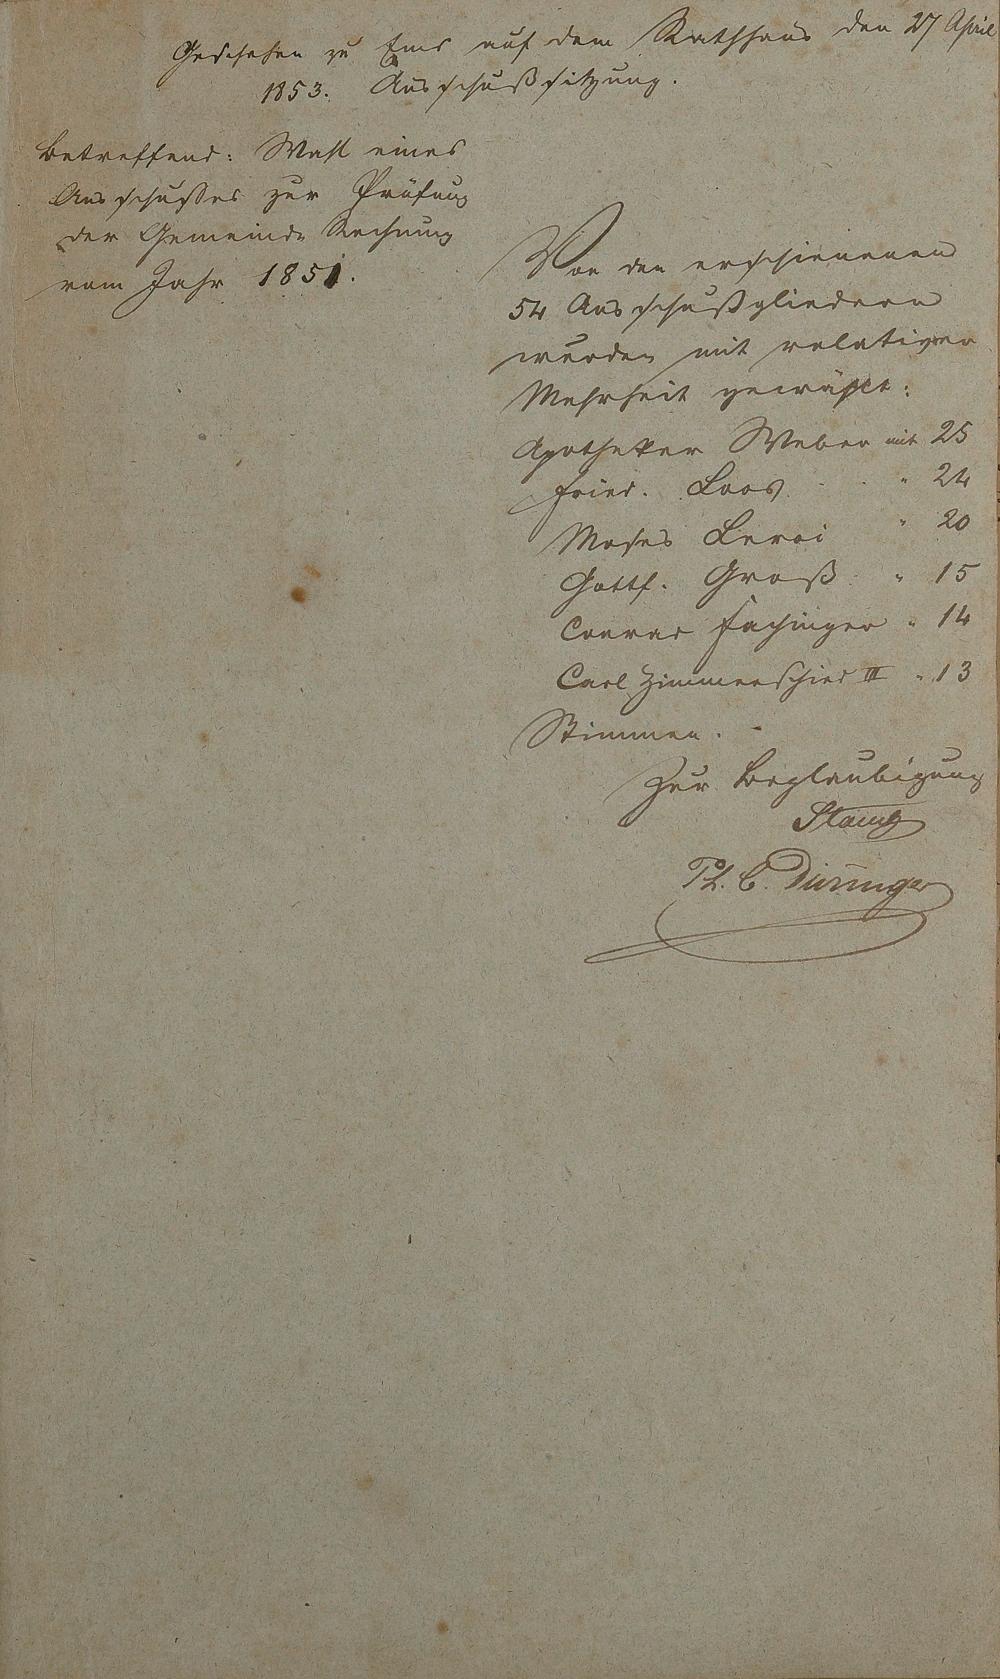 Geschehen zu Ems auf dem Rathhaus den 27 April
1853. Ausschußsitzung.
Betreffend: Wahl eines
Ausschusses zur Prüfung
der Gemeinde Rechnung
vom Jahr 1851.
Von den erschienenen
54 Ausschußgliedern
wurden mit relativer
Mehrheit gewählt:
Apotheker Weber mit 25
Fried. Loos " 24
Moses Leroi " 20
Gottf. Groß " 15
Conrad Fachinger " 14
Carl Zimmerschied III " 13
Stimmen.
Zur Beglaubigung
Ph. C. Düringer